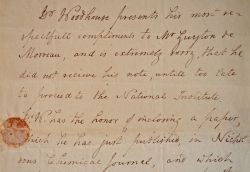 Dr Woodhouse presents his most re-
spectfull compliments to Mr Guyton de
Morveau, and is extremely sorry, that he
did not receive his note, untill too late
to proceed to the National Institute.
Dr W. has the honor of inclosing a paper,
which he has just published, in Nichol-
sons Chemical Journal, and which